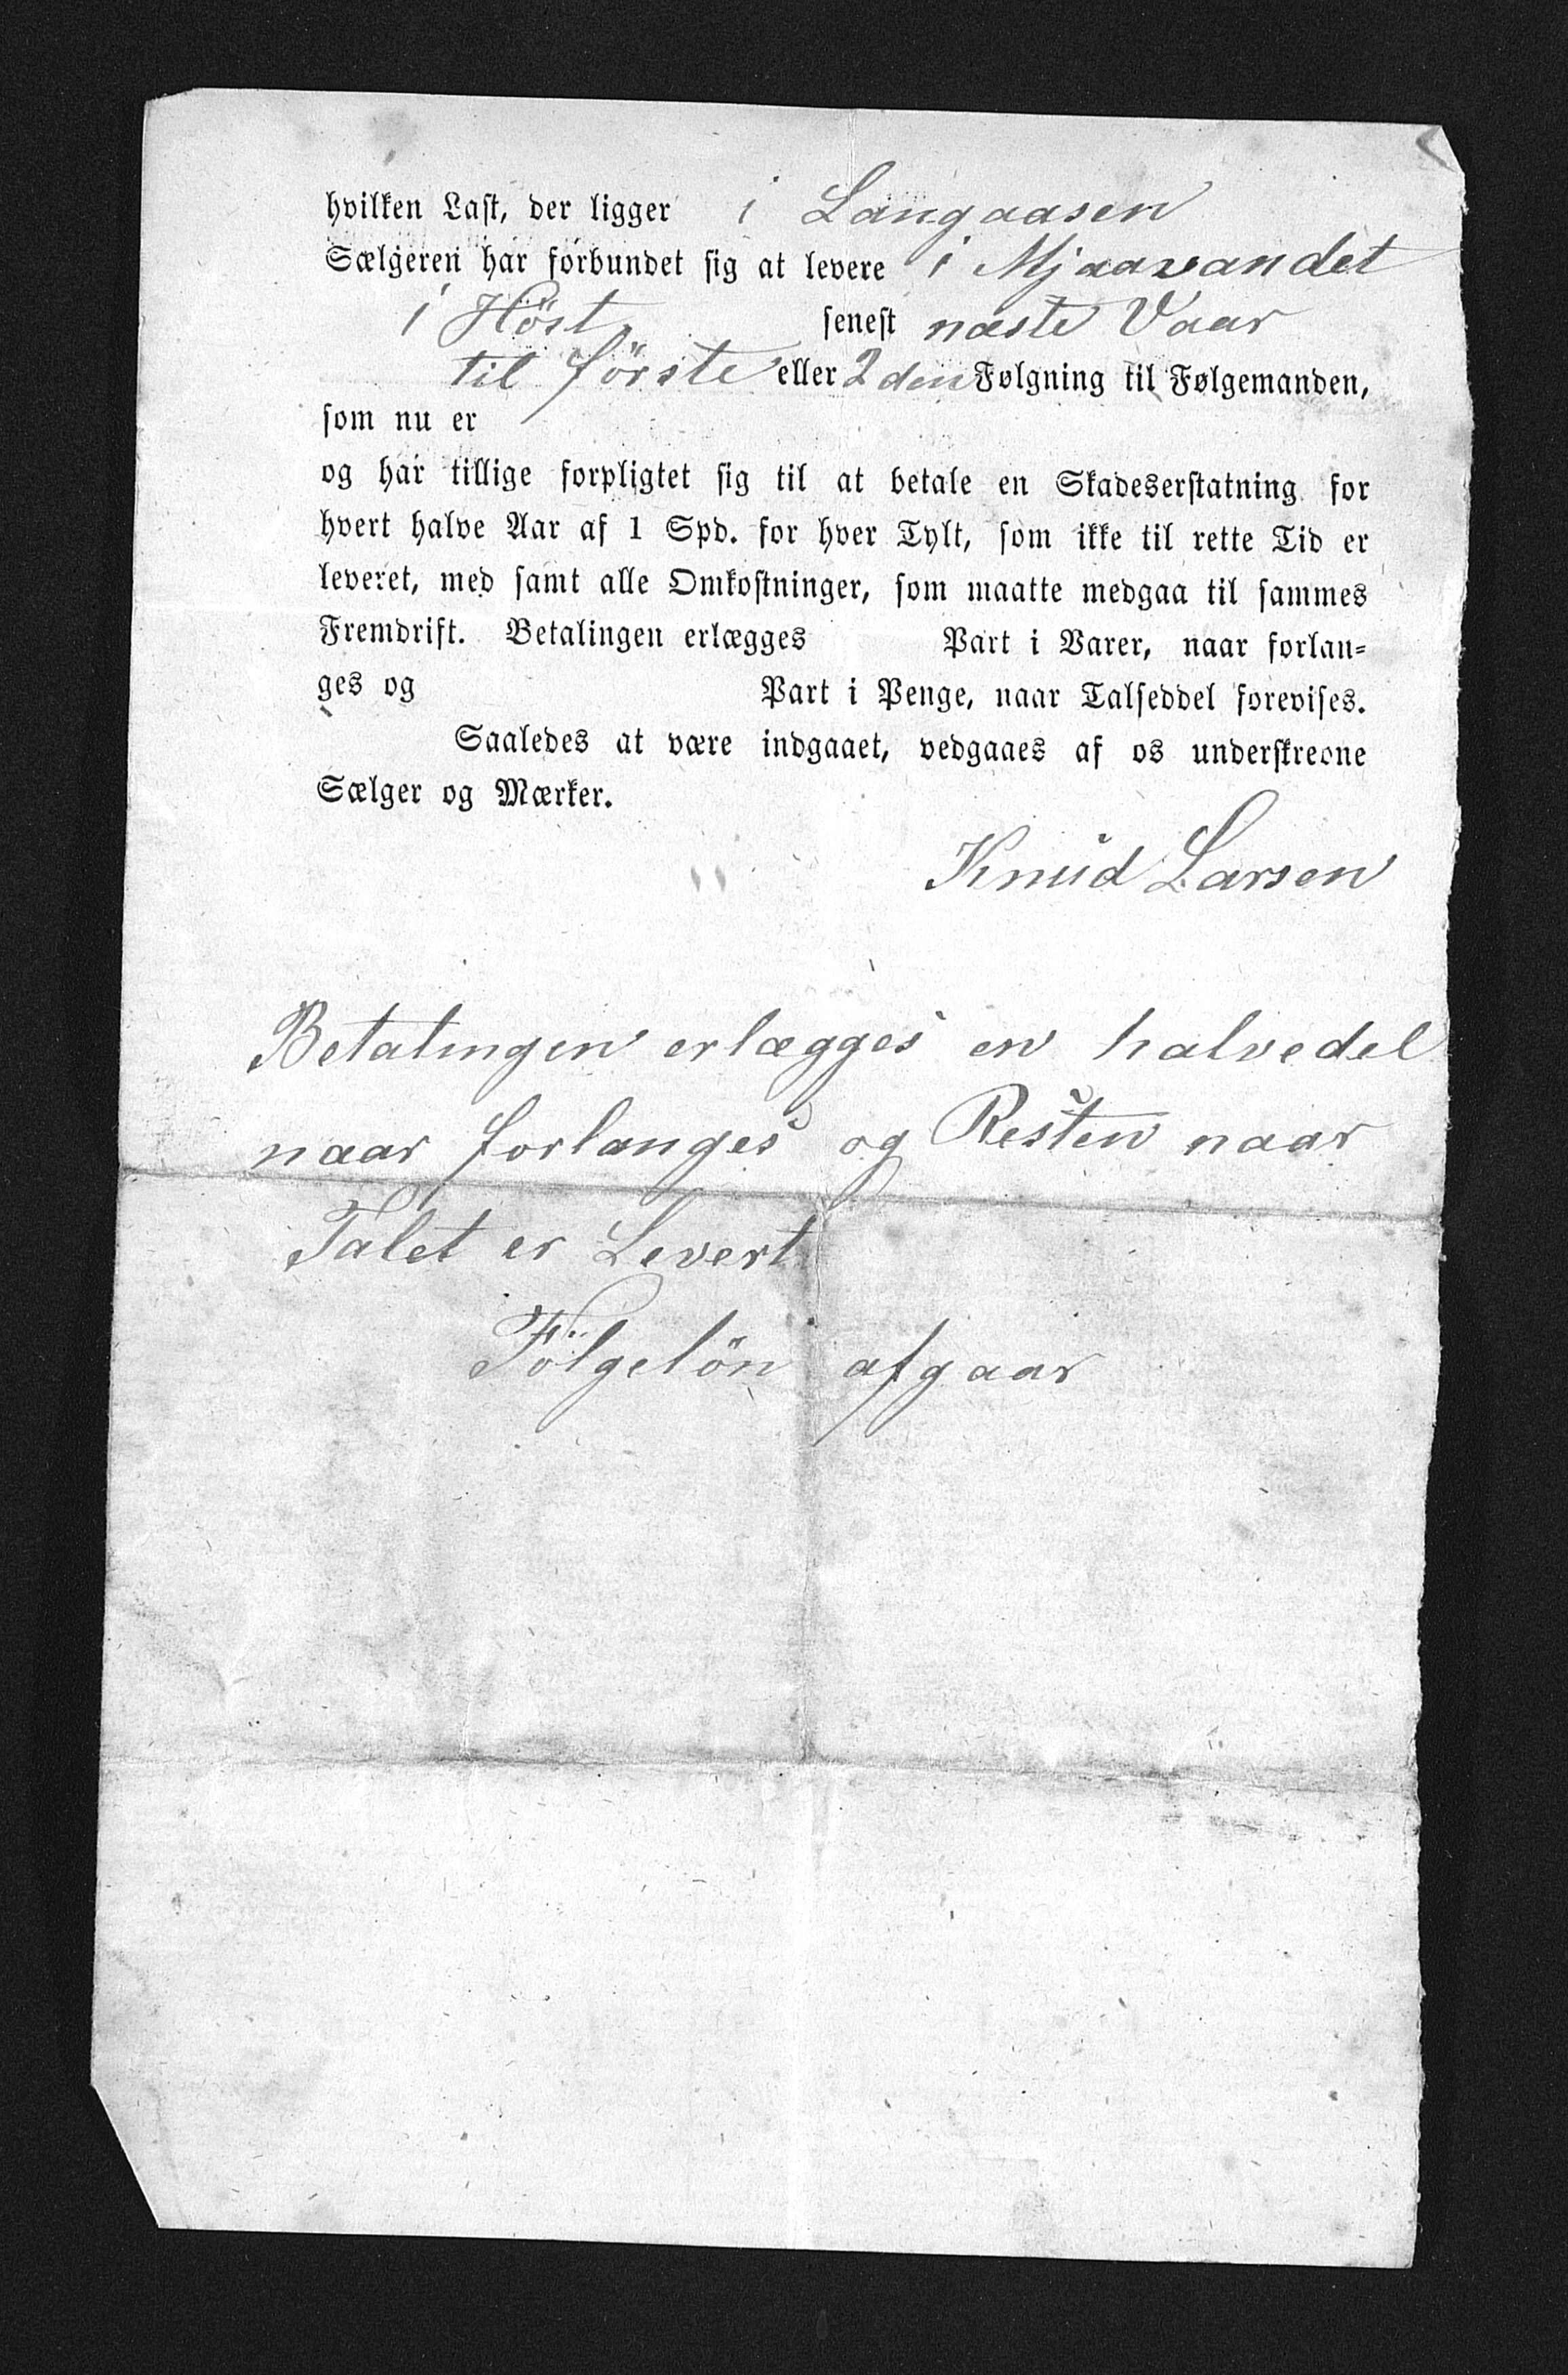 hvilken Last, der ligger i Langaasen
Sælgeren har forbundet sig at levere i Mjaavandet
i Höst senest næste Vaar
til förste eller 2den Følgning til Følgemanden,
som nu er
og har tillige forpligtet sig til at betale en Skadeserstatning for
hvert halve Aar af 1 Spd. for hver Tylt, som ikke til rette Tid er
leveret, med samt alle Omkostninger, som maatte medgaa til sammes
Fremdrift. Betalingen erlægges Part i Varer, naar forlan-
ges og Part i Penge, naar Talseddel forevises.
Saaledes at være indgaaet, vedgaaes af os underskrevne
Sælger og Mærker.
Knud Larsen
Betalingen erlægges en halvedel
naar forlanges og Resten naar
Talet er Levert
Fölgelön afgaar